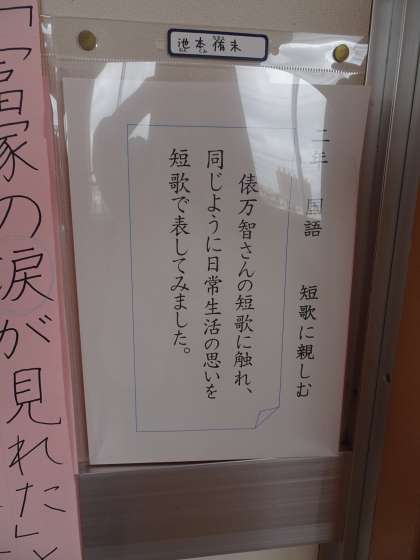 池本脩未
二年 国語 短歌に親しむ
俵万智さんの短歌に触れ、
同じように日常生活の思いを
短歌で表してみました。
「富家の涙が見れた」と